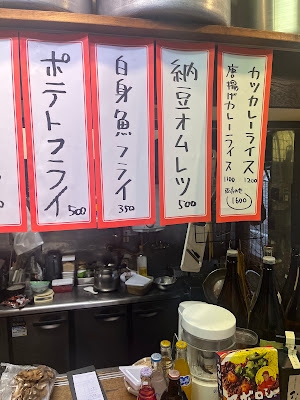 カツカレーライス
1200
唐揚げカレーライス
1100
1600
納豆オムレツ
500
自身魚フライ
350
ポテトフライ
500